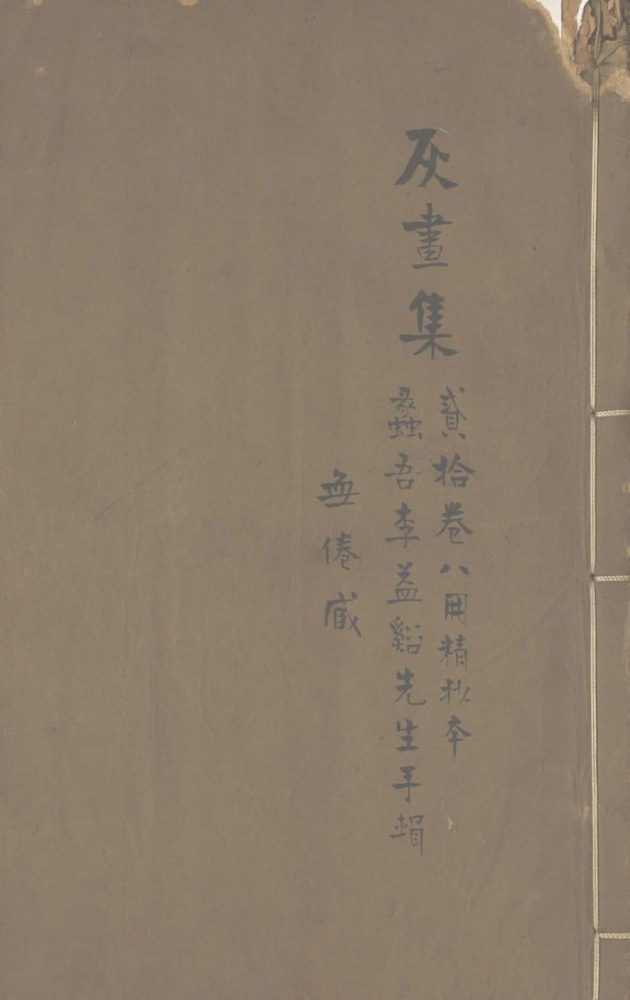 灰畫集
貳拾卷八冊精抄本
蠡吾李益谿先生手輯
無倦藏